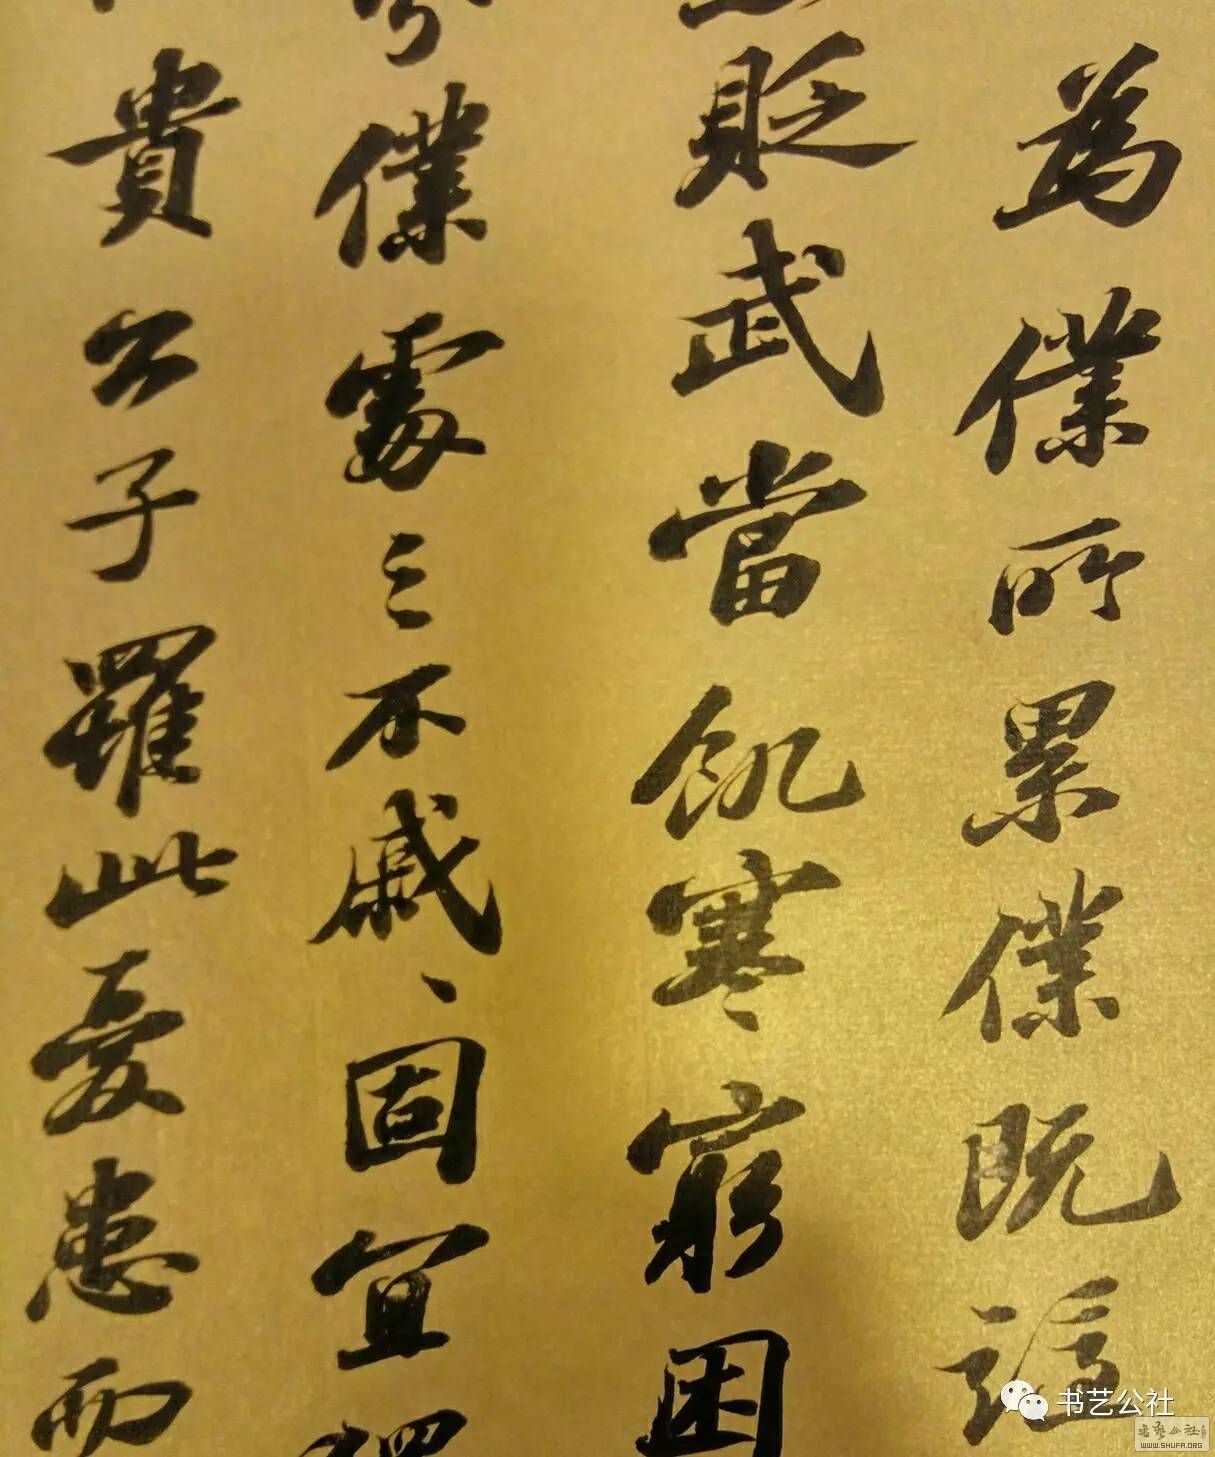 為僕所累僕既謫
貶武當飢寒窮困
僕處之不戚、固宜
貴公子罹此憂患而
书艺公社
书艺公社
WWW.SHUFA.ORG